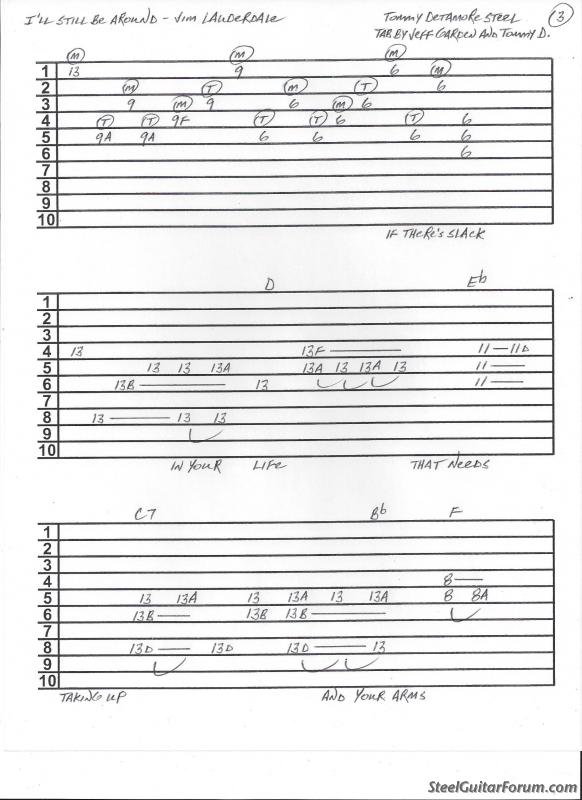 I'll Still Be Around – Jim Lauderdale
Tommy Detamore Steel
Tab by Jeff Garden and Tommy D.
3
M M M
1 13 9 6 M
2 M T M T 6
3 9 M 9 6 M 6
4 T T 9F T T 6 T 6
5 9A 9A 6 6 6 6
6 6
7
8
9
10
If There's Slack
D Eb
1
2
3
4 13 13F 11 11D
5 13 13 13A 13A 13 13A 13 11
6 13B 13 11
7
8 13 13 13
9
10
In Your Life That Needs
C7 Bb F
1
2
3
4 8
5 13 13A 13 13A 13 13A 8 8A
6 13B 13B 13B
7
8 13D 13D 13D 13
9
10
Taking Up And Your Arms
SteelGuitarForum.com